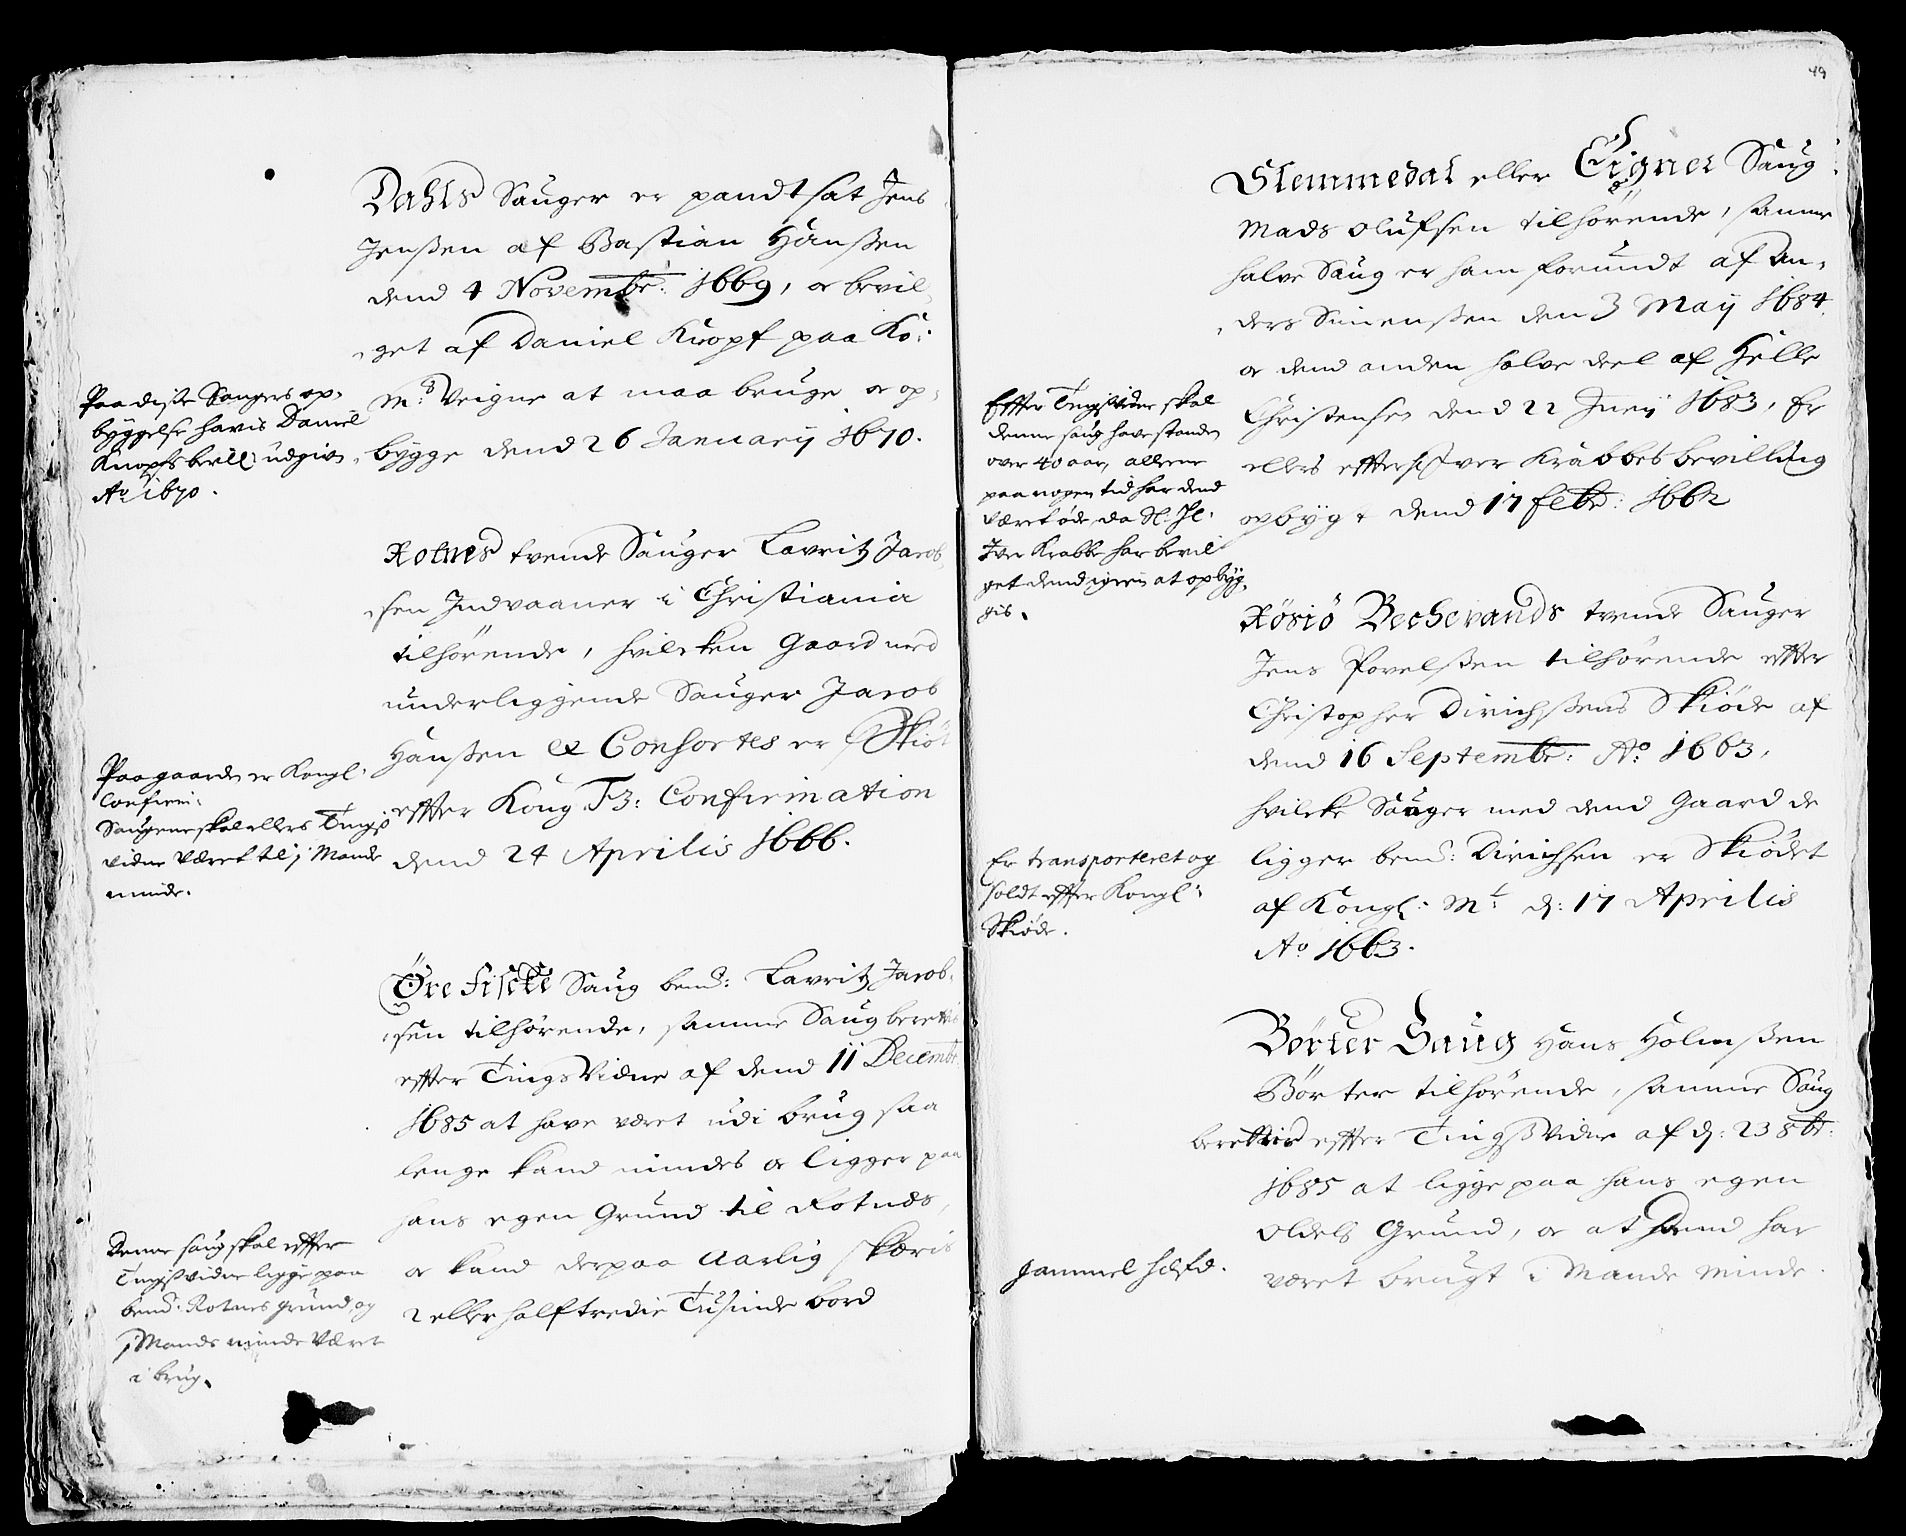 Dahls Sauger er pandtsat Jens
Jenßen af Bastian Hanßen
dend 4 Novembr: 1669, oc bevil,
get af Daniel Knopf paa Ko:
Ms: Veigne at maa bruge oc op,
bygge dend 26 January 1670.
Paa diße Saugers op,
byggelse havis Daniel
Knopfs bevill: udgivn,
Ao 1670.
Rotnes tvende Sauger Lavritz Jacob,
sen Indvaaner i Christiania
tilhörende, hvilcken Gaard med
underliggende Sauger Jacob
Hanßen et Consortes er Skiöt
effter Kong F3: Confirmation
dend 24 Aprilis 1666.
Paa gaarden er Kongl:
Confirm:
Saugene skal ellers Tings
vidne været til i Mande
minde.
Öre fiscke Saug bemd: Lavritz Jacob,
sen tilhörende, samme Saug berettis
effter TingsVidne af dend 11 Decembr
1685 at have været udi brug saa
lenge kand mindes oc ligger paa
hans egen Grund til Rotnes,
oc kand derpaa Aarlig skæris
2 eller halftredie Tusinde bord
Denne saug skal effter
Tingßvidne ligge paa
bemd: Rotnes grund, og
i Mands minde Været
i brug.
49
Slemmedal eller Eigner Saug
Mads Olufsen tilhörende, samme
halve Saug er ham forundt af An,
ders Simenßen den 3 May 1684.
oc dend anden halve deel af Helle
Christensen dend 22 Juny 1683, Er
ellers effter Iver Krabbes bevilling
opbygt dend 17 febr: 1662
Effter Tingsvidne skal
denne saug have standen
over 40 aar, allene
paa nogen tid har dend
Været öde, da Sl. Hl:
Iver Krabbe har bevil
get dend igien at opbyg,
gis.
Rösiö Bechevands tvende Sauger
Jens Povelßen tilhörende effter
Christopher Dirichßens Skiöde af
dend 16 Septembr: Ao 1663,
hvilcke Sauger med dend Gaard de
ligger bemd: Dirichsen er Skiödet
af Kongl: Mt: d: 17 Aprilis
Ao 1663.
Er transporteret og
soldt effter Kongl:
Skiöde.
Börter Saug Hans Holmßen
Börter tilhörende, samme Saug
berettis effter Tingßvidne af d: 23 8br:
1685 at ligge paa hans egen
Odels Grund, oc at hand har
været brugt i Mande Minde.
gammel